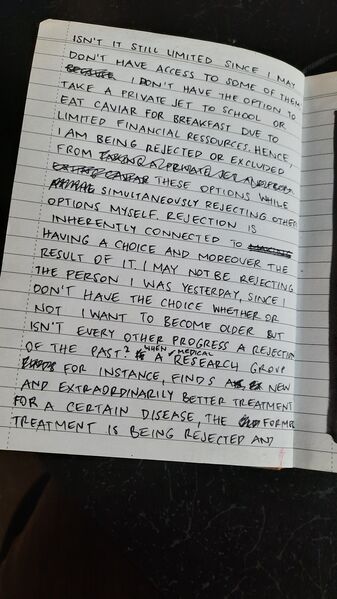 ISN'T IT STILL LIMITED SINCE I MAY
DON'T HAVE ACCESS TO SOME OF THEM
I DON'T HAVE THE OPTION TO
TAKE A PRIVATE JET TO SCHOOL OR
EAT CAVIAR FOR BREAKFAST DUE TO
LIMITED FINANCIAL RESSOURCES. HENCE,
I AM BEING REJECTED OR EXCLUDED
FROM
THESE OPTIONS WHILE
SIMULTANEOUSLY REJECTING OTHER
OPTIONS MYSELF. REJECTION IS
INHERENTLY CONNECTED TO
HAVING A CHOICE AND MOREOVER THE
RESULT OF IT. I MAY NOT BE REJECTING
THE PERSON I WAS YESTERDAY, SINCE I
DON'T HAVE THE CHOICE WHETHER OR
NOT I WANT TO BECOME OLDER BUT
ISN'T EVERY OTHER PROGRESS A REJECTION
OF THE PAST? WHEN A MEDICAL RESEARCH GROUP
FOR INSTANCE, FINDS A NEW
AND EXTRAORDINARILY BETTER TREATMENT
FOR A CERTAIN DISEASE, THE FORMER
TREATMENT IS BEING REJECTED AND